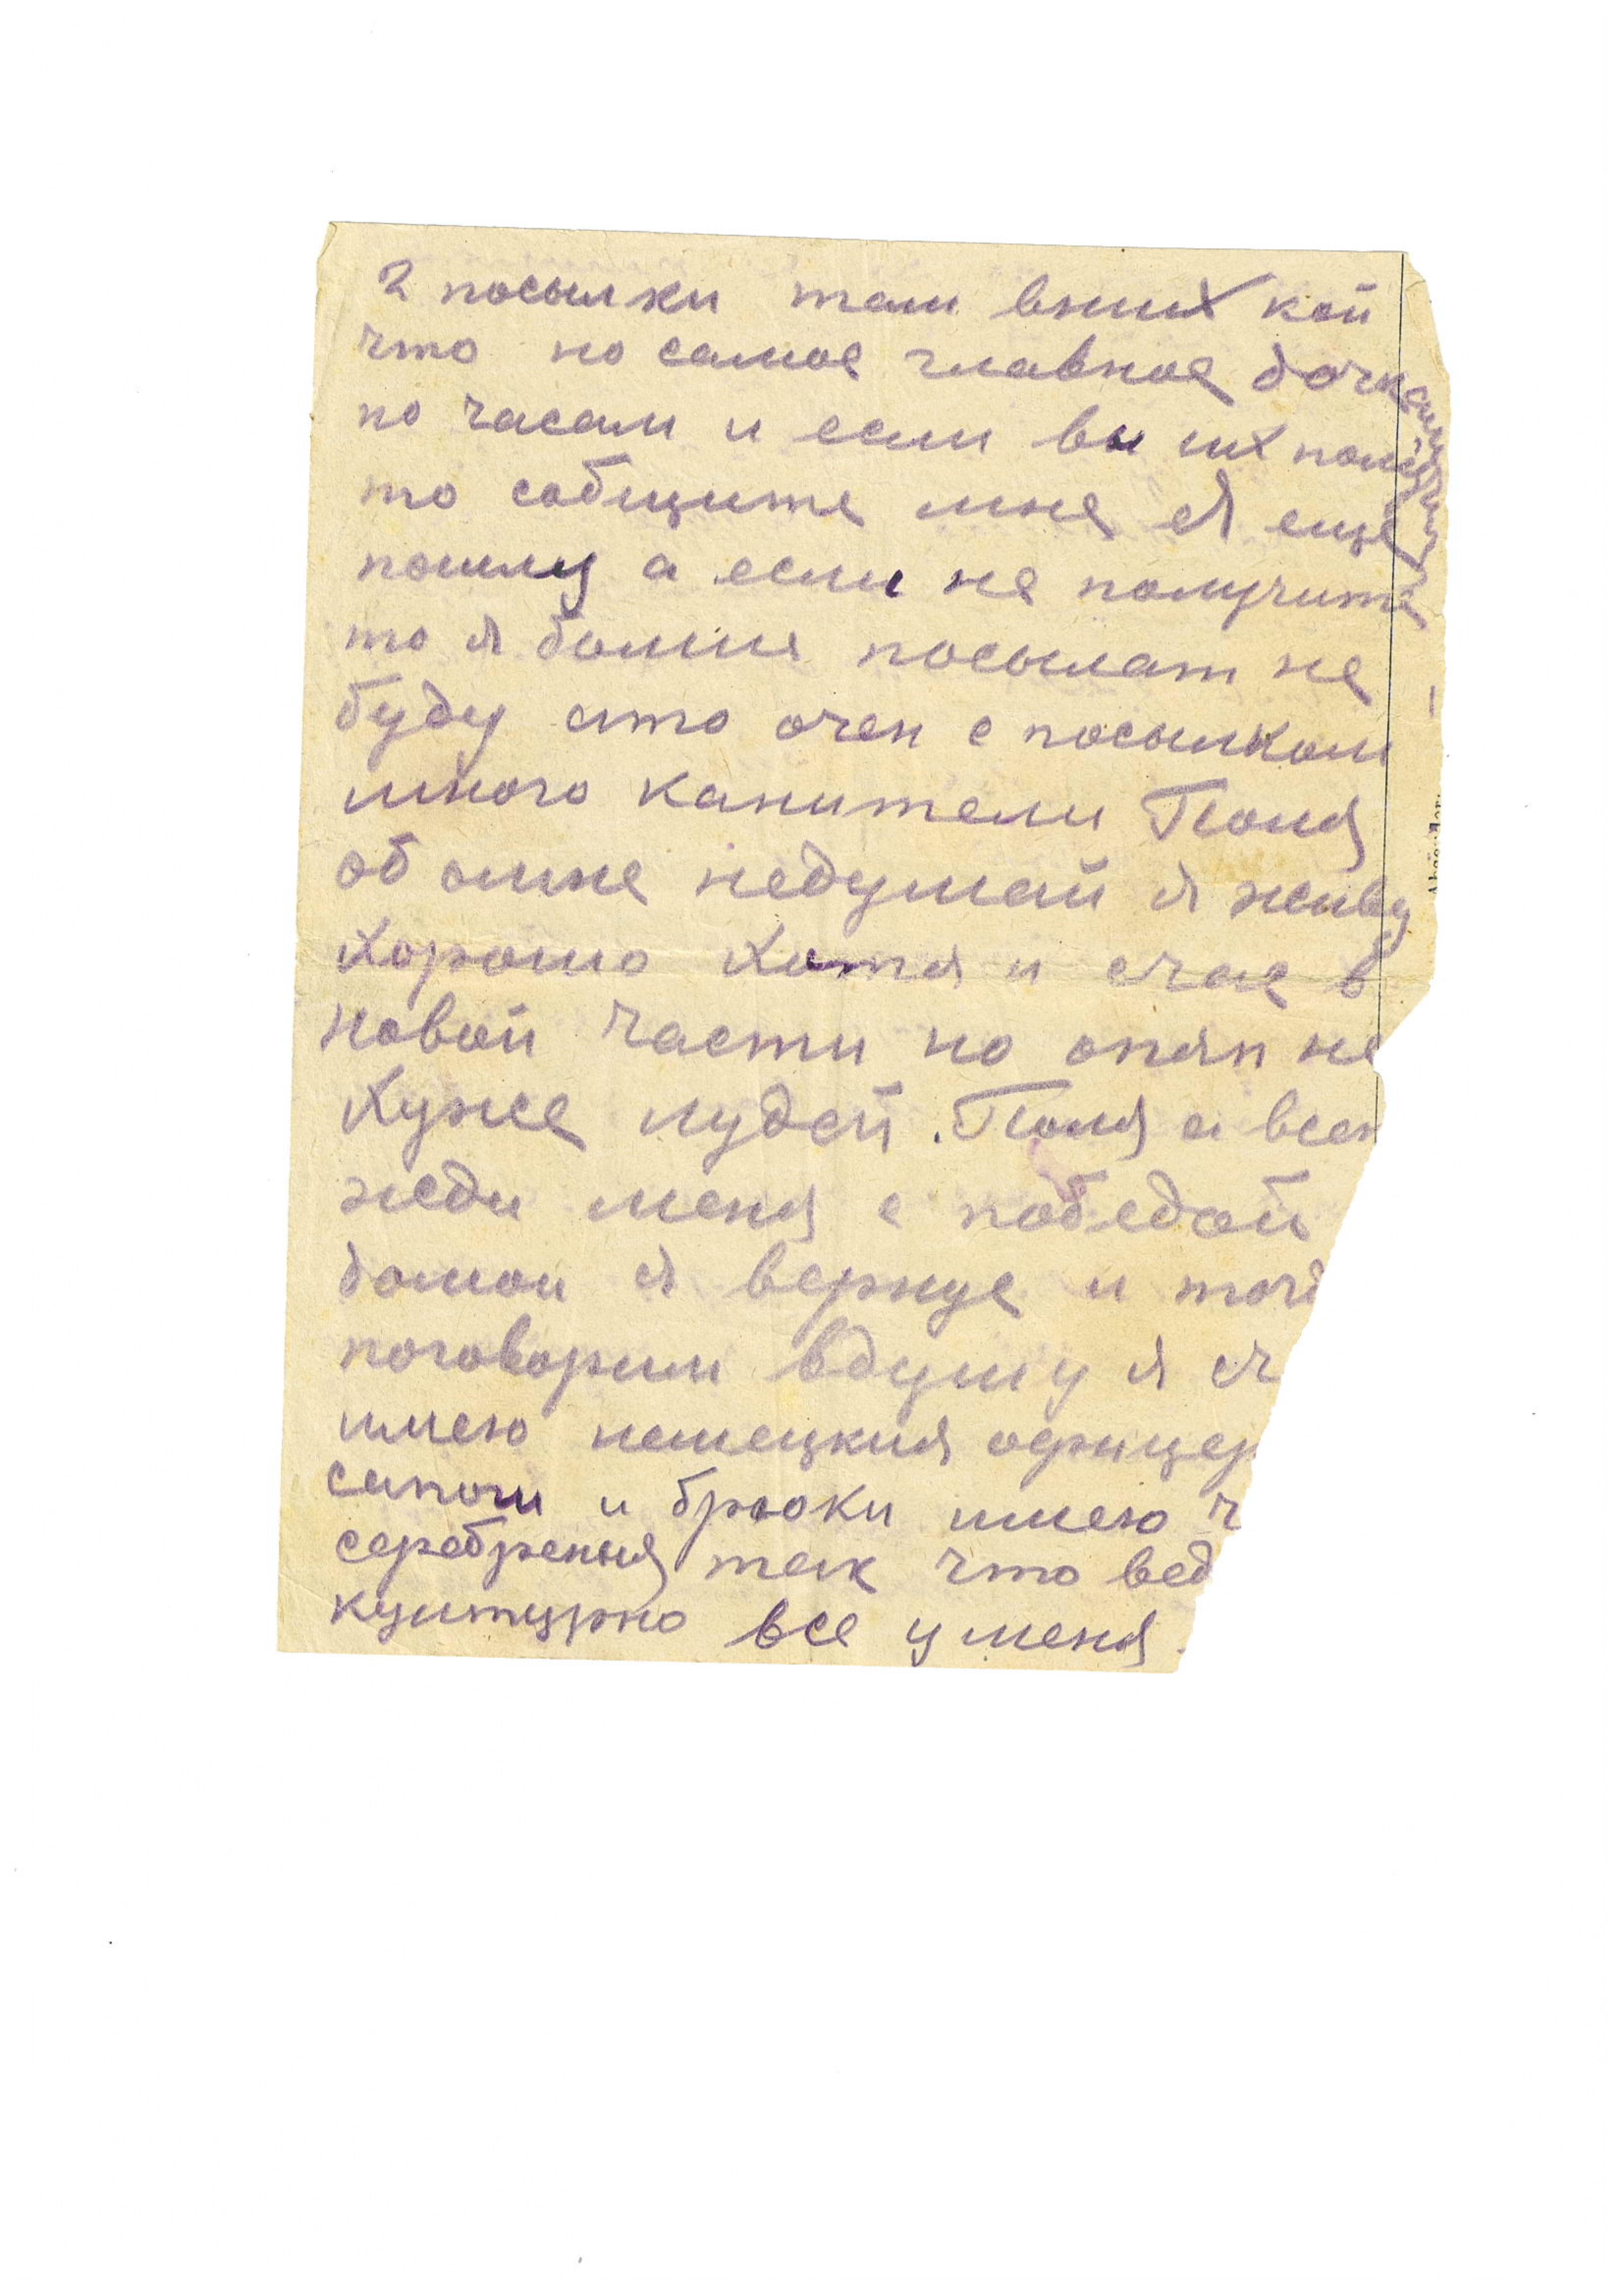 2 посылки там вних кой
что но самое главное дочкам
по часам и если вы их получите
то собщите мне я еще
пошлу а если не получите
то я болше посылат не
буду ато очен с посылком
много канители Поля
об мне недумай я живу
хорошо хотя и счас в
новой части но опят не
хуже лудей. Поля а всех
жеди меня с победой
домои я вернус и тогд
поговорим вдушу я сч
имею немецкия офицер
сапоги и брюки имею ч
серебреныя так что вед
културно все у меня